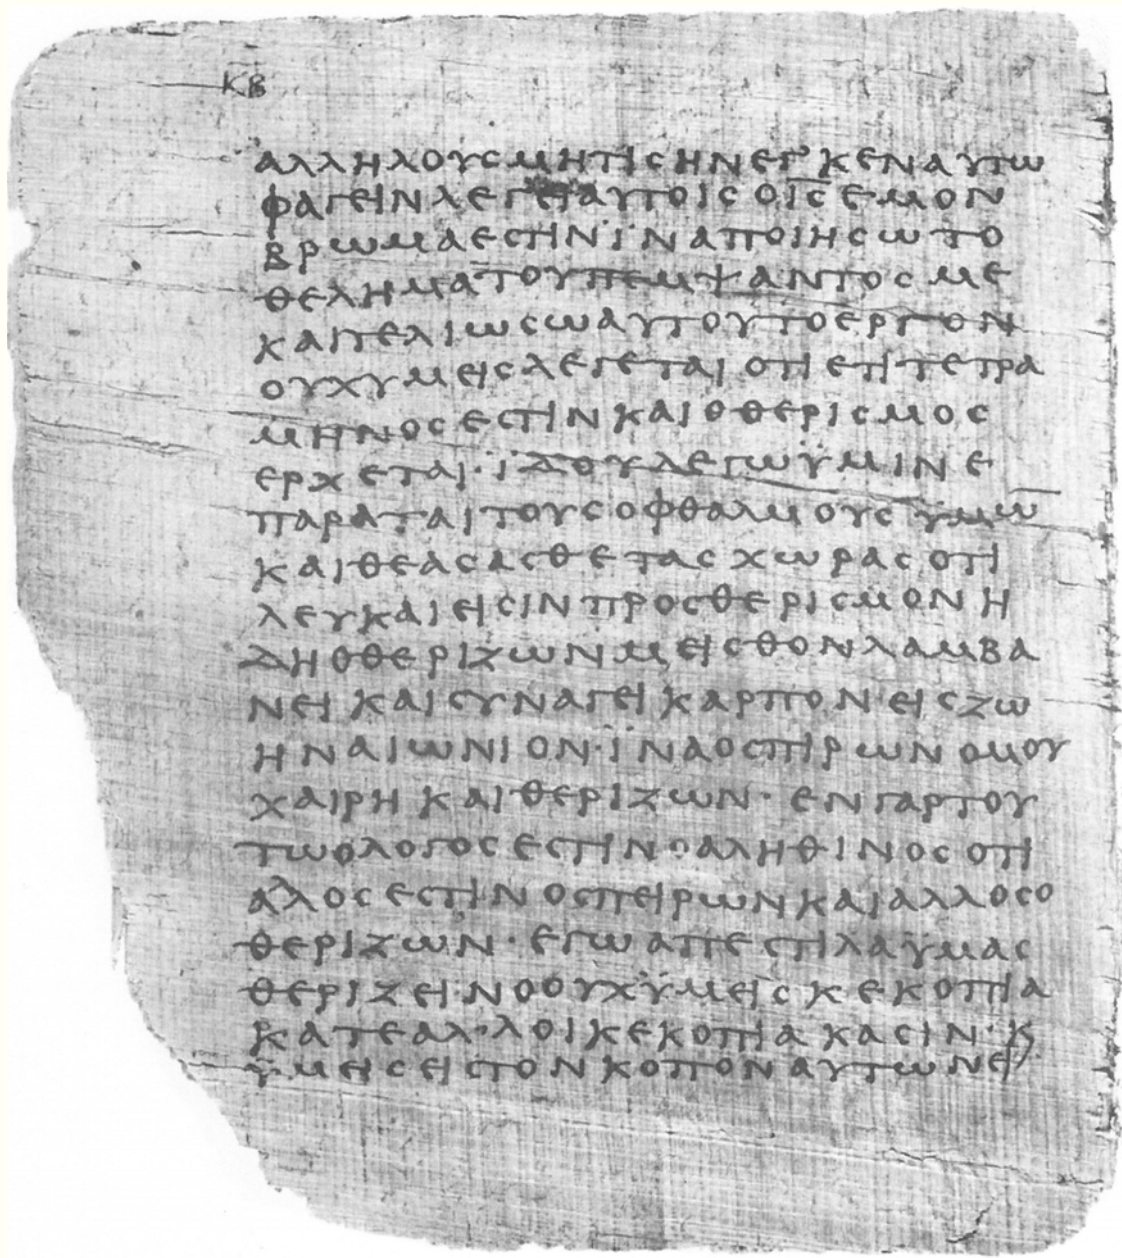 ΚΒ
ΑΛΛΗΛΟΥϹΜΗΤΙϹΗΝΕΓ᾽ΚΕΝΑΥΤΩ
ΦΑΓΕΙΝΛΕΓΕΙΑΥΤΟΙϹΟΙ̅Ϲ̅ΕΜΟΝ
ΒΡΩΜΑΕϹΤΙΝ·ΪΝΑΠΟΙΗϹΩΤΟ
ΘΕΛΗΜΑΤΟΥΠΕΜΨΑΝΤΟϹΜΕ
ΚΑΙΤΕΛΙΩϹΩΑΥΤΟΥΤΟΕΡΓΟΝ
ΟΥΧΥΜΕΙϹΛΕΓΕΤΑΙΟΤΙΕΤΙΤΕΤΡΑ
ΜΗΝΟϹΕϹΤΙΝΚΑΙΟΘΕΡΙϹΜΟϹ
ΕΡΧΕΤΑΙ·ΪΔΟΥΛΕΓΩΫΜΙΝΕ
ΠΑΡΑΤΑΙΤΟΥϹΟΦΘΑΛΜΟΥϹΫΜΩ̅
ΚΑΙΘΕΑϹΑϹΘΕΤΑϹΧΩΡΑϹΟΤΙ
ΛΕΥΚΑΙΕΙϹΙΝΠΡΟϹΘΕΡΙϹΜΟΝΗ
ΔΗΟΘΕΡΙΖΩΝΜΕΙϹΘΟΝΛΑΜΒΑ
ΝΕΙΚΑΙϹΥΝΑΓΕΙΚΑΡΠΟΝΕΙϹΖΩ
ΗΝΑΙΩΝΙΟΝ·ΪΝΑΟϹΠΙΡΩΝΟΜΟΥ
ΧΑΙΡΗΚΑΙΘΕΡΙΖΩΝ·ΕΝΓΑΡΤΟΥ
ΤΩΟΛΟΓΟϹΕϹΤΙΝΟΑΛΗΘΙΝΟϹΟΤΙ
ΑΛΛΟϹΕϹΤΙΝΟϹΠΕΙΡΩΝΚΑΙΑΛΛΟϹΟ
ΘΕΡΙΖΩΝ·ΕΓΩΑΠΕϹΤΙΛΑΫΜΑϹ
ΘΕΡΙΖΕΙΝΟΟΥΧΫΜΕΙϹΚΕΚΟΠΙΑ
ΚΑΤΕΑΛ᾽ΛΟΙΚΕΚΟΠΙΑΚΑϹΙΝ·Ϗ
ΫΜΕΙϹΕΙϹΤΟΝΚΟΠΟΝΑΥΤΩΝΕΙ